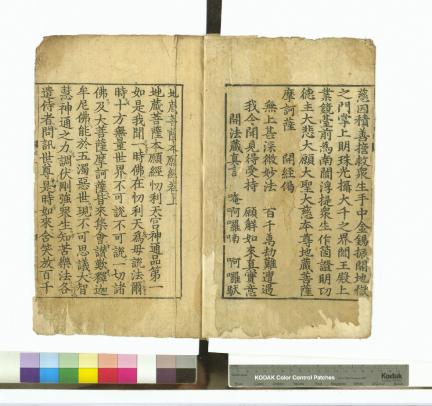 慈因積善誓救衆生手中金錫振開地獄
之門掌上明珠光攝大千之界閻王殿上
業鏡臺前爲南閻浮提衆生作箇證明功
德主大悲大願大聖大慈本尊地藏菩薩
摩訶薩 開經偈
無上甚深微妙法 百千萬劫難遭遇
我今聞見得受持 願解如來眞實意
開法藏眞言 唵阿囉喃 阿囉馱
地藏菩薩本願經卷上
地藏菩薩本願經忉利天宮神通品第一
如是我聞一時佛在忉利天爲母說法爾
時十方無量世界不可說不可說一切諸
佛及大菩薩摩訶薩皆來集會讚歎釋迦
牟尼佛能於五濁惡世現不可思議大智
慧神通之力調伏剛强衆生知苦樂法各
遣侍者問訊世尊是時如來含笑放百千
KODAK Color Control Patches
Kodak